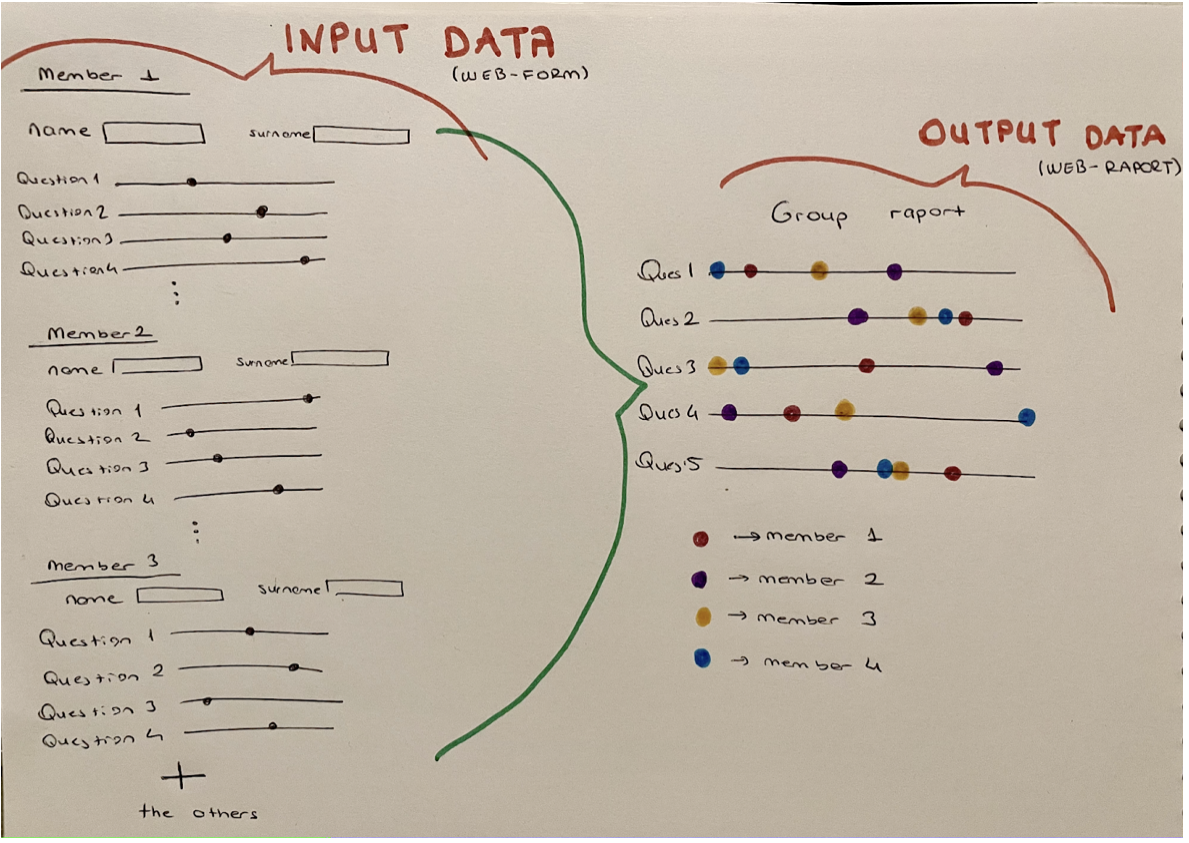 INPUT DATA
(WEB-FORM)
Member 1
name surname
Question 1
Question 2
Question 3
Question 4
Member 2
name surname
Question 1
Question 2
Question 3
Question 4
member 3
name surname
Question 1
Question 2
Question 3
Question 4
+
the others
OUTPUT DATA
(WEB-RAPORT)
Group raport
Ques 1
Ques 2
Ques 3
Ques 4
Ques.5
→ member 1
→ member 2
→ member 3
→ member 4